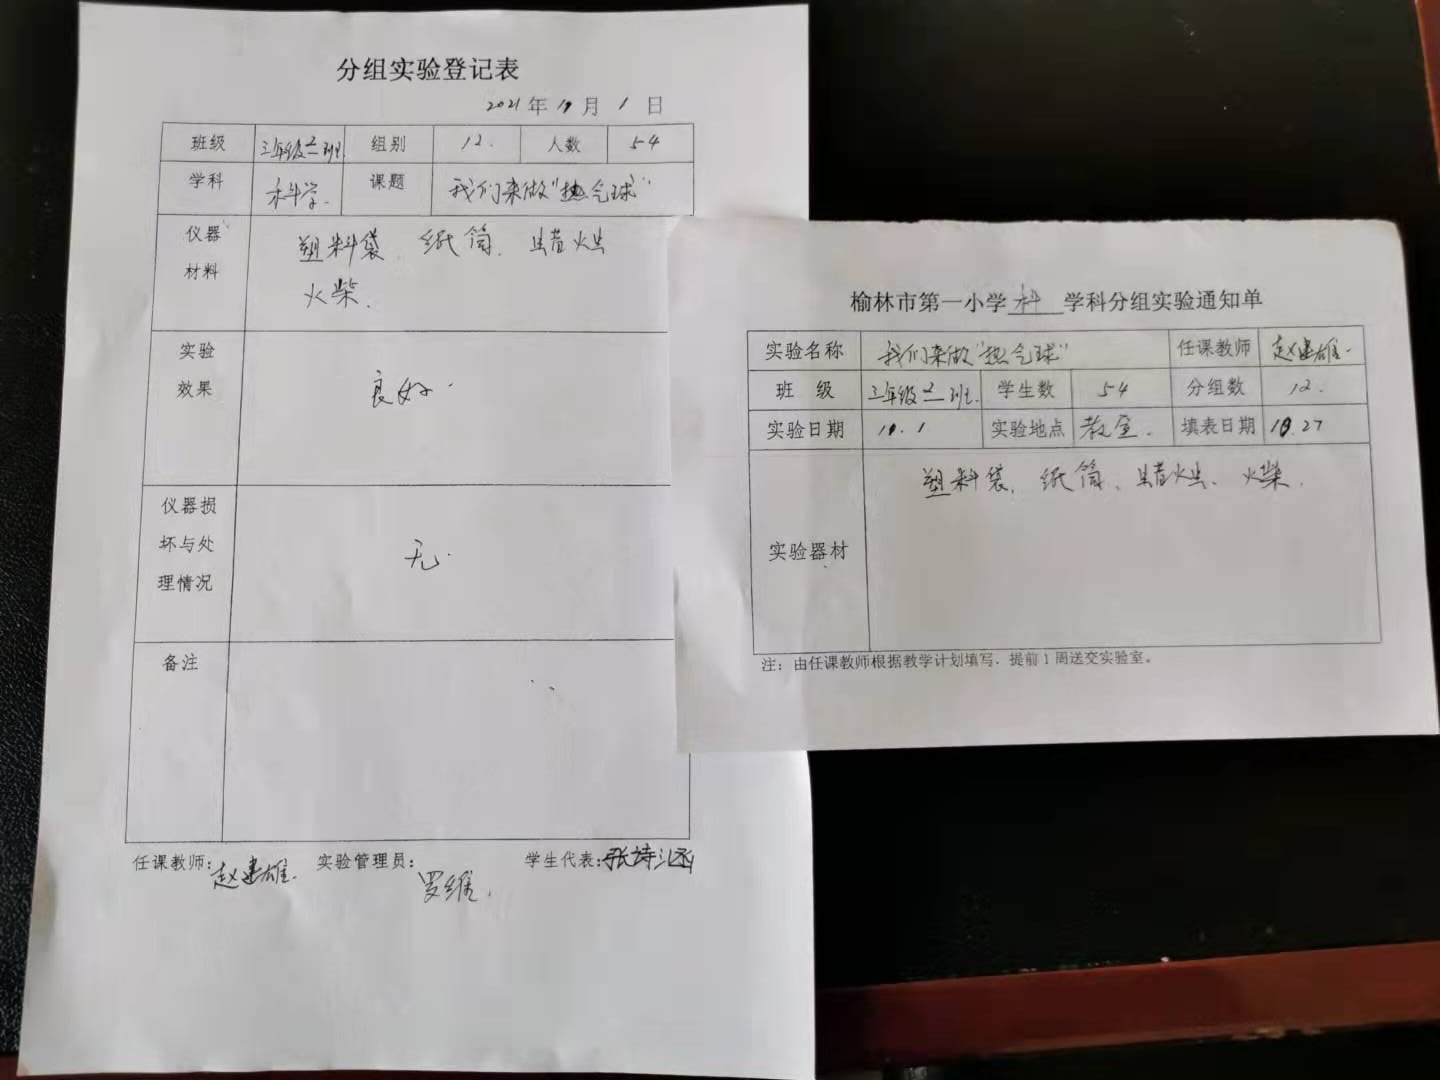 分组实验登记表
2021年 10月 1日
班级 三年级2班 组别 12. 人数 54
学科 科学. 课题 我们来做"热气球"
仪器材料 塑料袋 纸筒、蜡烛
火柴.
实验效果 良好.
仪器损坏与处理情况 无.
备注
任课教师: 赵建雄. 实验管理员: 罗维. 学生代表: 张诗涵
榆林市第一小学 科 学科分组实验通知单
实验名称 我们来做"热气球" 任课教师 赵建雄.
班 级 三年级2班. 学生数 54 分组数 12.
实验日期 10.1 实验地点 教室. 填表日期 10.27
实验器材 塑料袋、纸筒、蜡烛、火柴.
注：由任课教师根据教学计划填写，提前1周送交实验室。